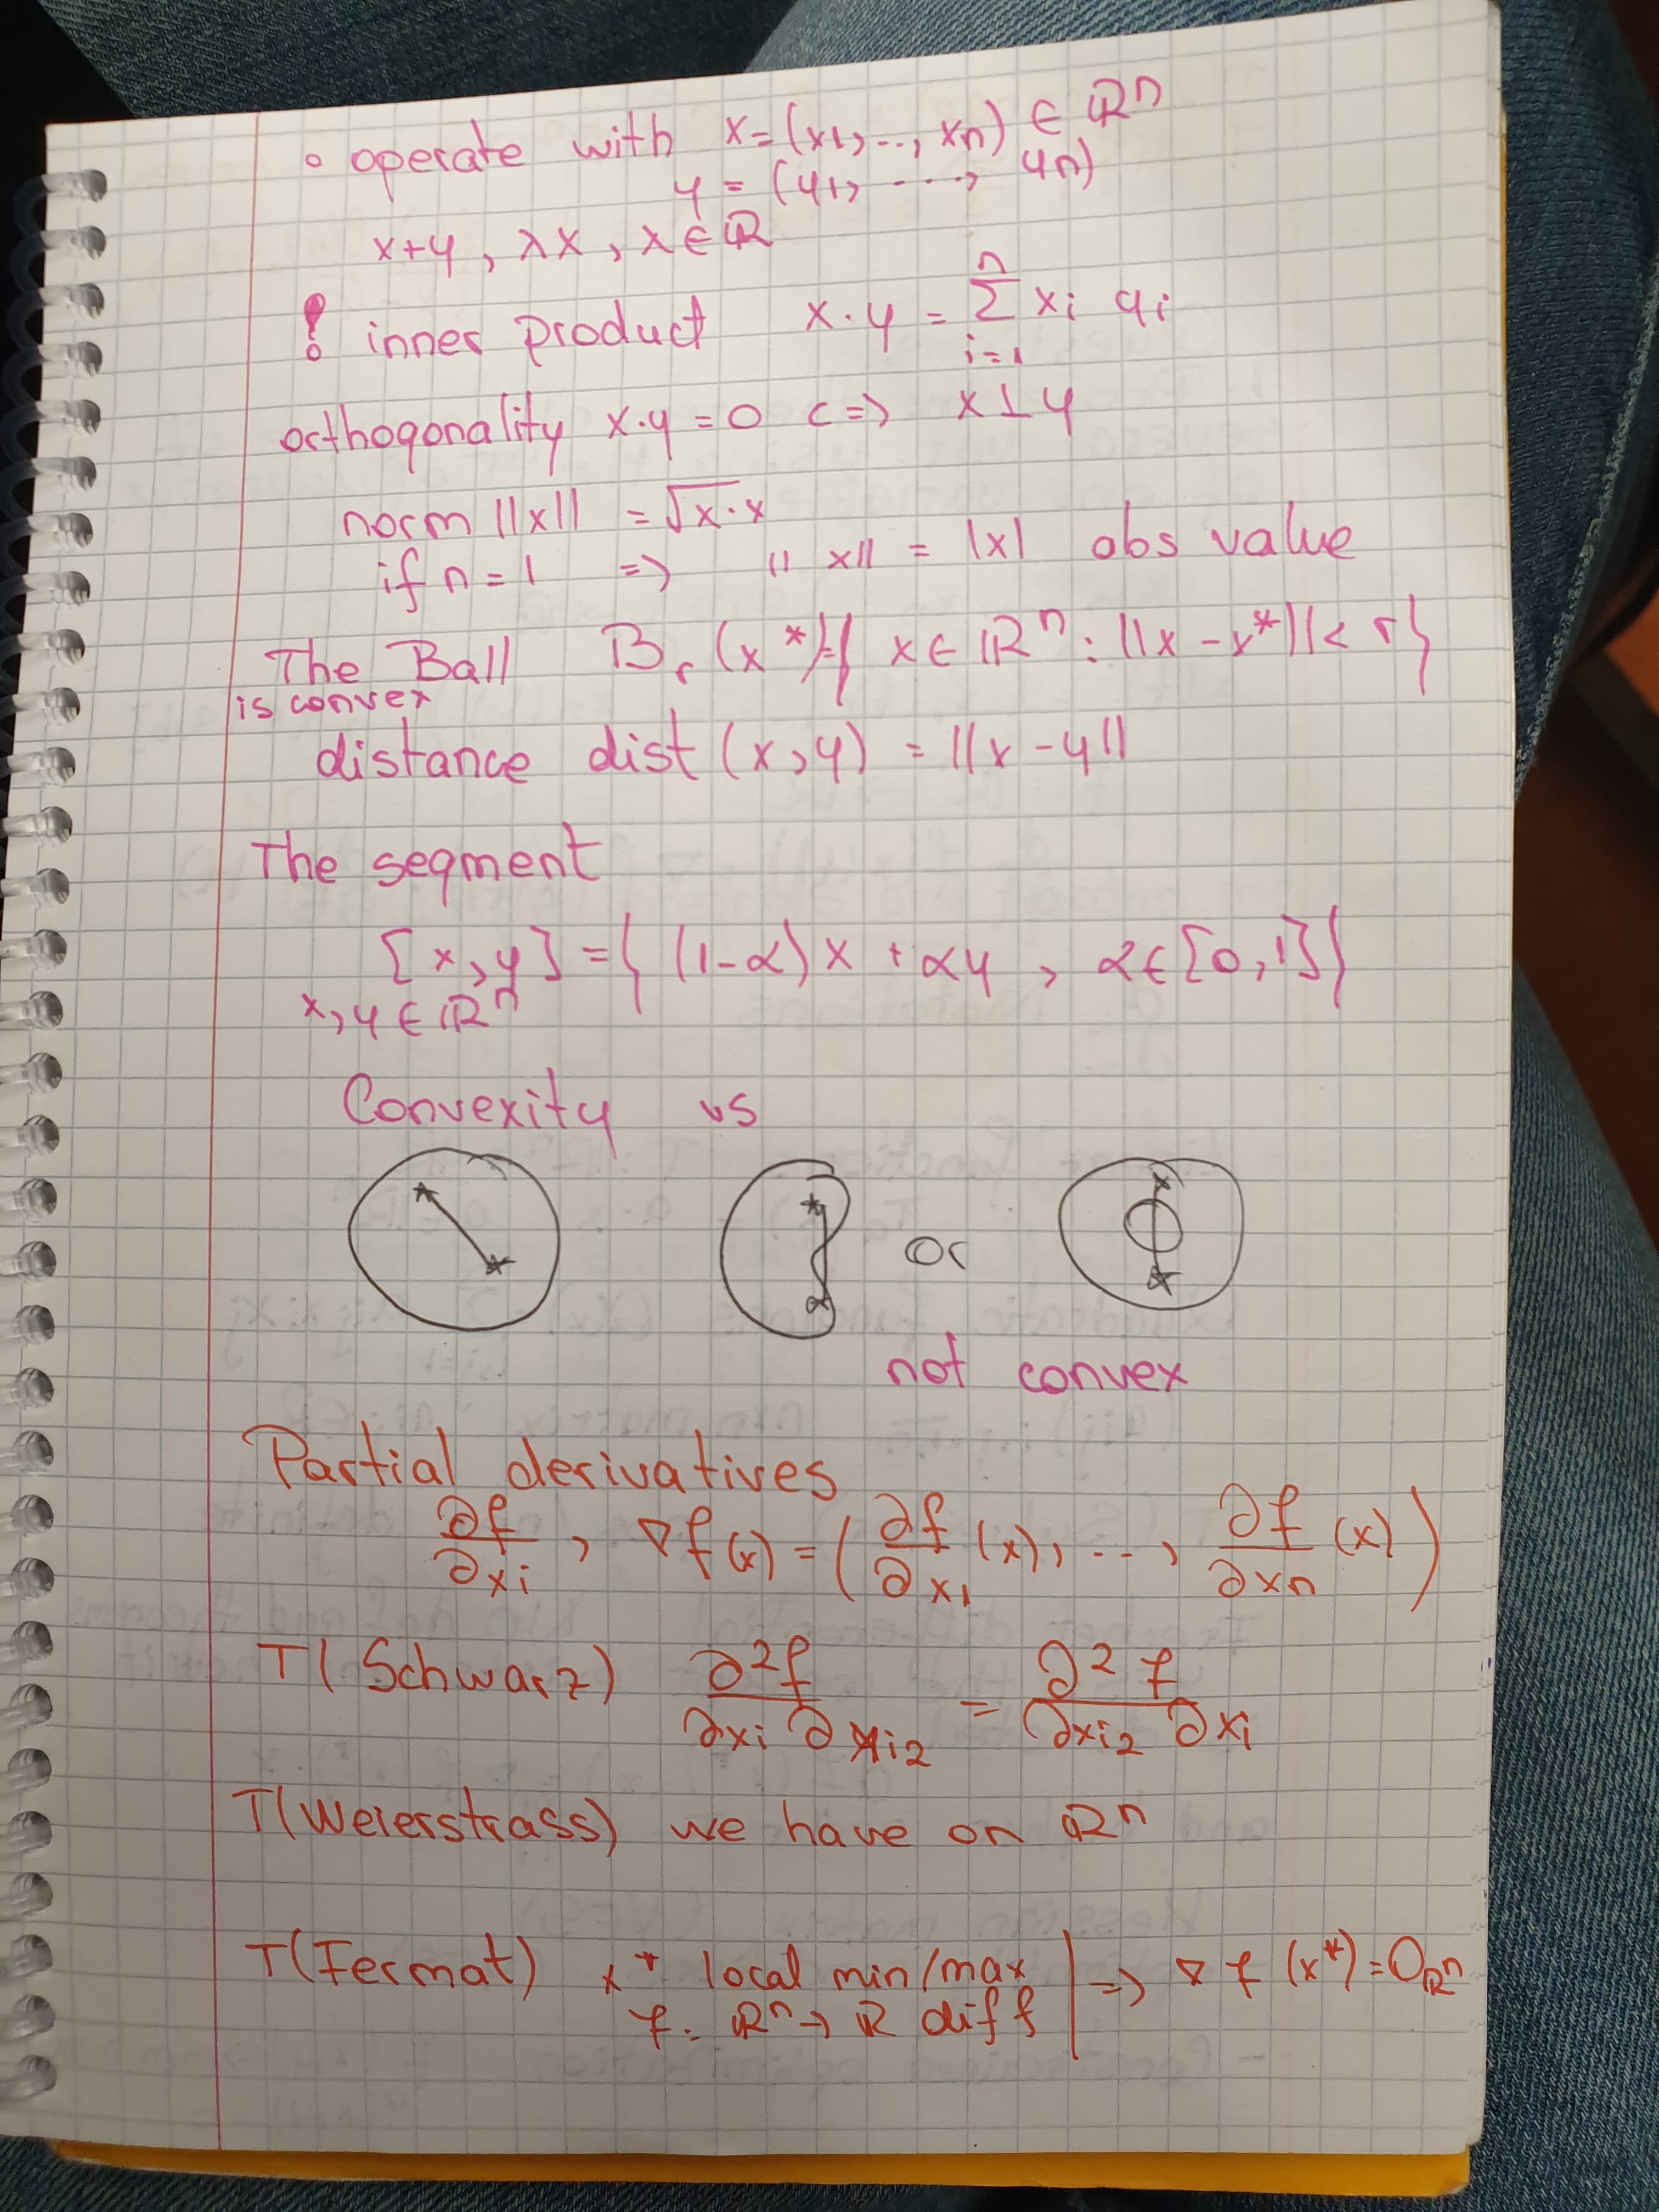 ∘ operate with x=(x1,..,xn) ∈ ℝⁿ
y = (y1, ...., yn)
x+y, λx, λ∈ℝ
! inner product x·y = ∑ᵢ₌₁ⁿ xi yi
orthogonality x·y = 0 <=> x⊥y
norm ||x|| = √x·x
if n=1 => ||x|| = |x| abs value
The Ball Br(x*)={x∈ℝⁿ: ||x-x*||< r}
is convex
distance dist(x,y) = ||x-y||
The segment
[x,y] = {(1-α)x + αy, α∈[0,1]}
x,y∈ℝⁿ
Convexity vs
or
not convex
Partial derivatives
∂f/∂xi, ∇f(x) = (∂f/∂x1 (x), ..., ∂f/∂xn (x))
T(Schwarz) ∂²f/∂xi ∂xi2 = ∂²f/∂xi2 ∂xi
T(Weierstrass) we have on ℝⁿ
T(Fermat) x* local min/max | => ∇f(x*)=0ℝⁿ
f: ℝⁿ→ℝ diff